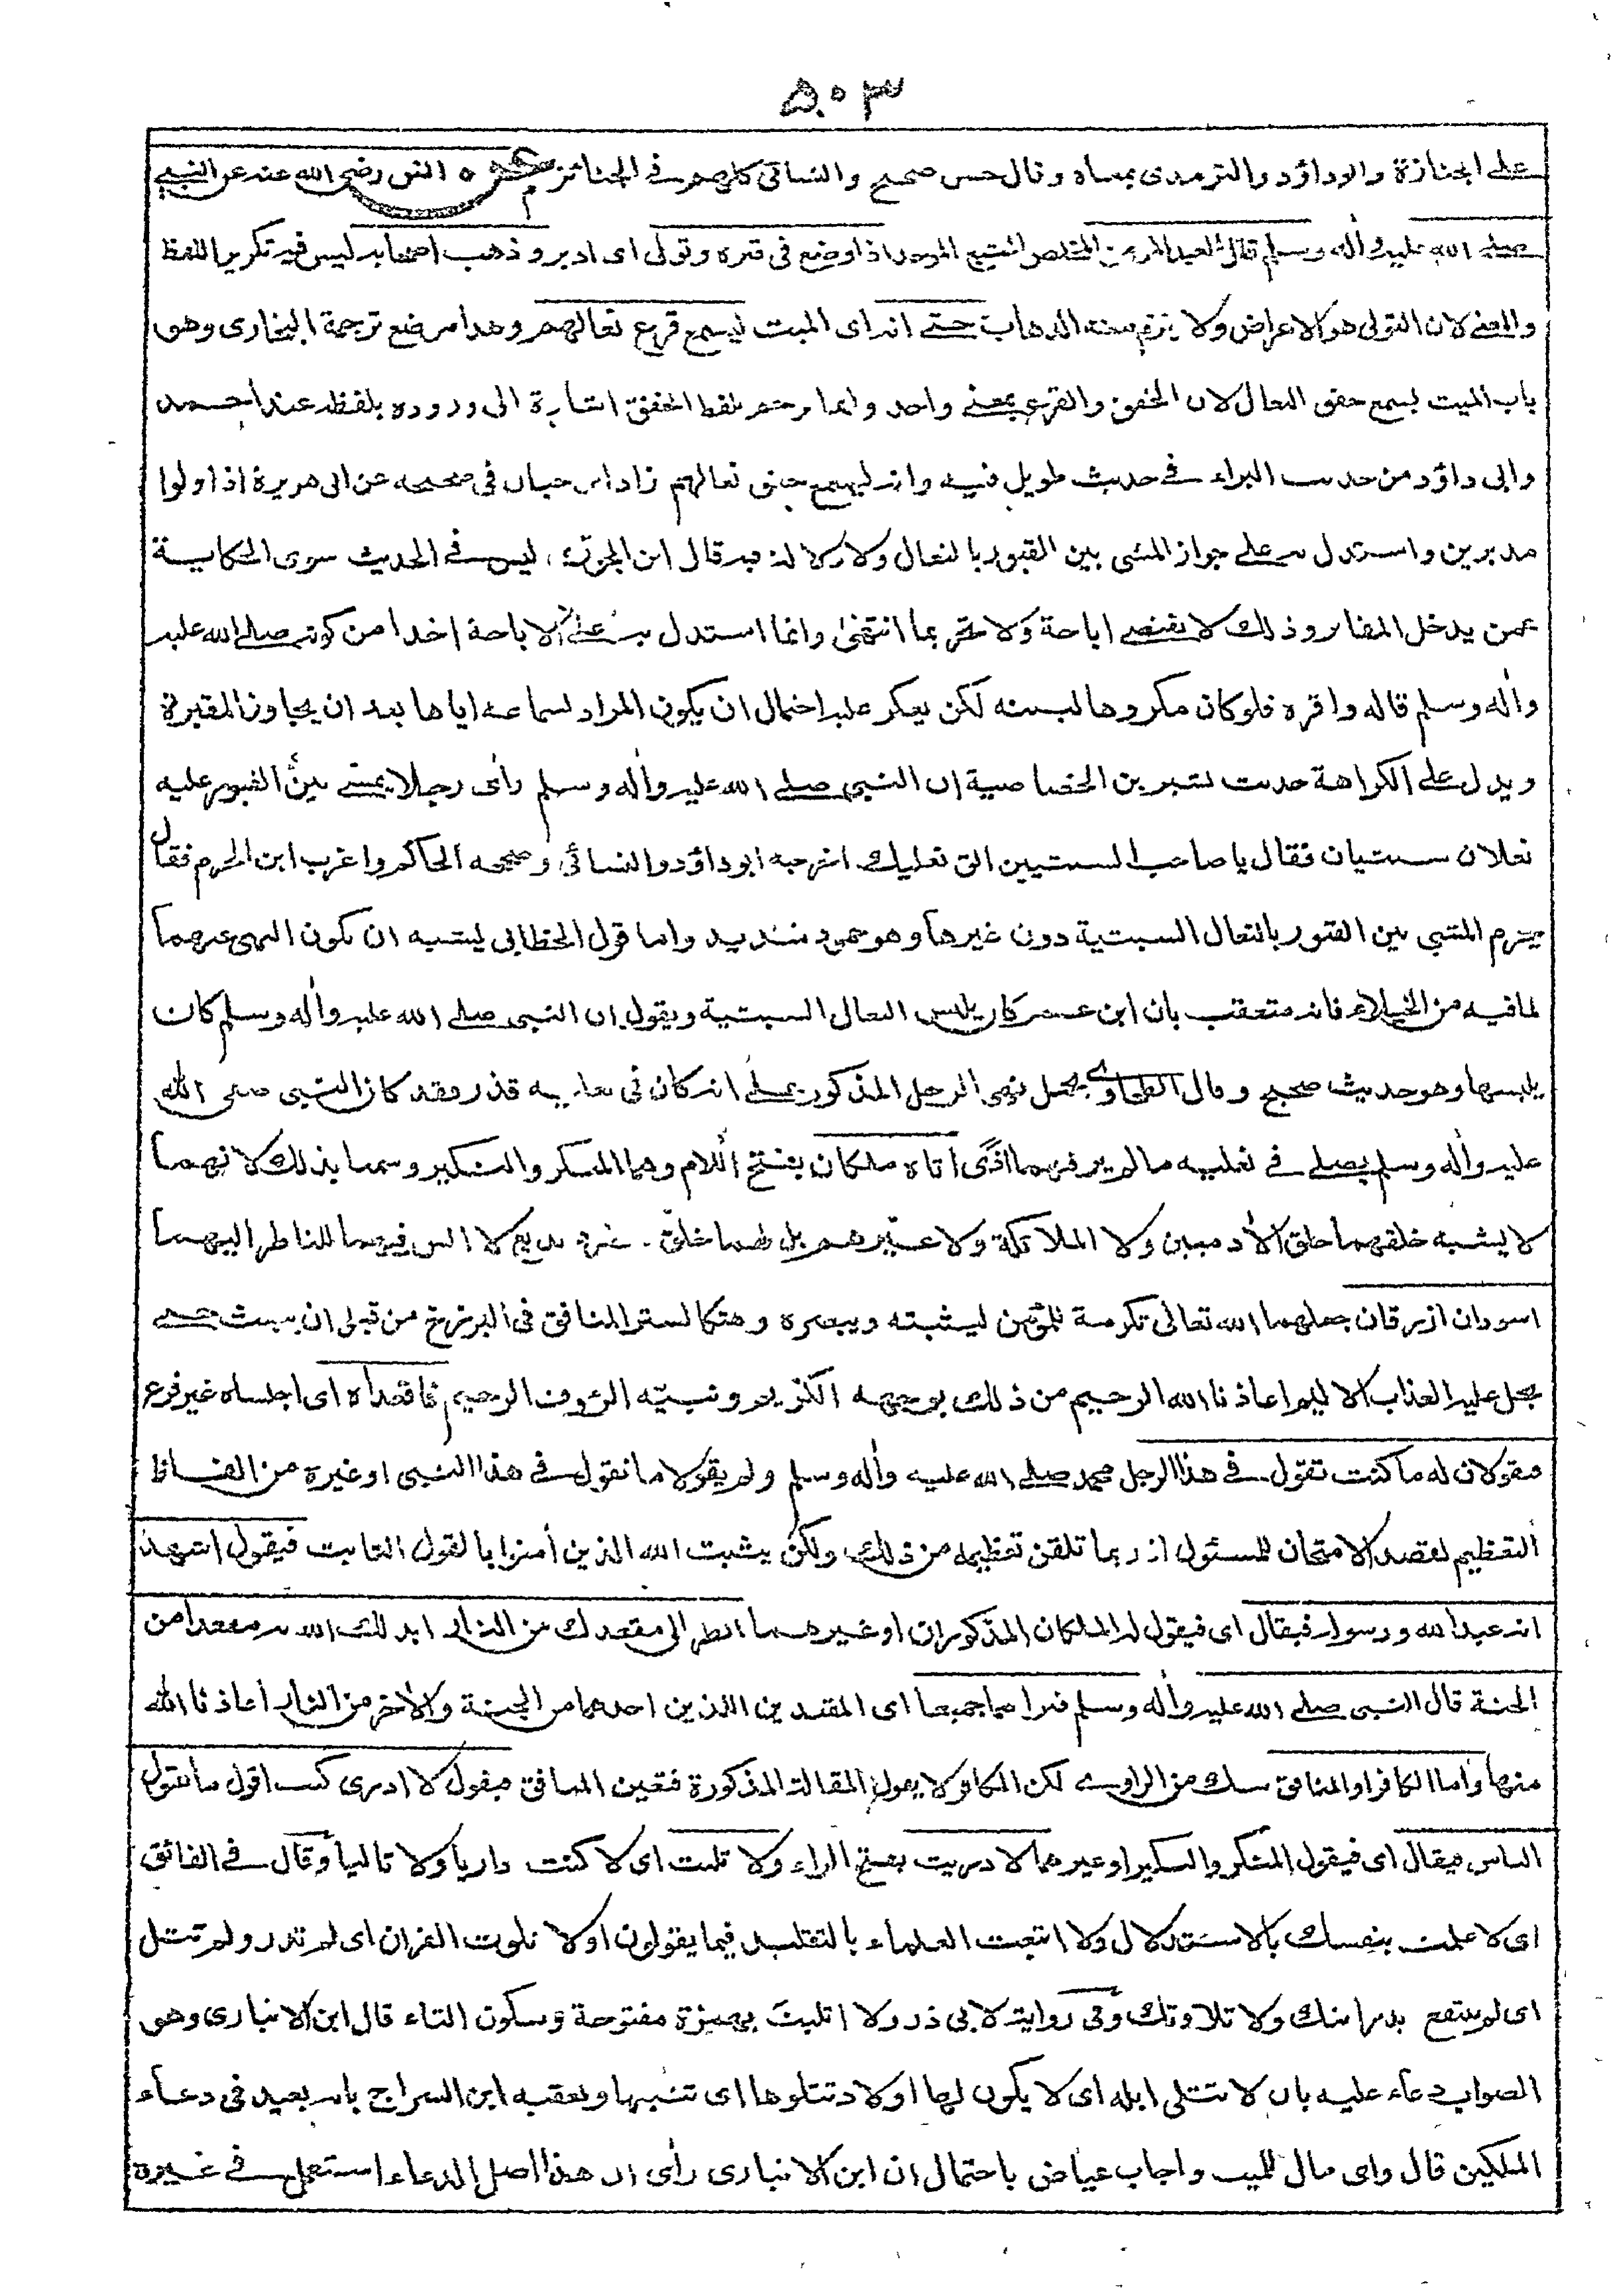 ٥٠٣
على الجنازة وابوداؤد والترمذى بمعناه وقال حسن صحيح والنسائى كلهم فى الجنائز عن انس رضى الله عنه عن النبى
صلے الله عليه واٰله وسلم قال العبد المؤمن المخلص اذا وضع فى قبره وتولى اى ادبر وذهب اصحابه ليس فيه تكرير اللفظ
والمعنے لان التولى هو الاعراض ولا يلزم منه الذهاب حتے انه اى الميت ليسمع قرع نعالهم وهذا موضع ترجمة البخارى وهو
باب الميت يسمع خفق النعال لان الخفق والقرع بمعنے واحد وانما ترجم بلفظ الخفق اشارة الى وروده بلفظه عند احمد
وابى داؤد من حديث البراء فے حديث طويل فيه وانه ليسمع خفق نعالهم زاد ابن حبان فى صحيحه عن ابى هريرة اذا ولوا
مدبرين واستدل به علے جواز المشى بين القبور بالنعال ولا دلالة فيه قال ابن الجوزى ليس فے الحديث سوى الحكاية
عمن يدخل المقابر وذلك لا يقتضے اباحة ولا تحريما انتهىٰ وانما استدل به علے الاباحة اخذا من كونه صلے الله عليه
واٰله وسلم قاله واقره فلو كان مكروها لبينه لكن يعكر عليه احتمال ان يكون المراد لسماعه اياها بعد ان يجاوز المقبرة
ويدل علے الكراهة حديث بشير بن الخصاصية ان النبى صلے الله عليه واٰله وسلم راٰى رجلا يمشے بين القبور عليه
نعلان سبتيان فقال يا صاحب السبتيتين الق نعليك اخرجه ابوداؤد والنسائى وصححه الحاكم واغرب ابن الحزم فقال
يحرم المشى بين القبور بالنعال السبتية دون غيرها وهو جمود شديد واما قول الخطابى يشبه ان يكون النهى عنهما
لما فيه من الخيلاء فانه متعقب بان ابن عمر كان يلبس النعال السبتية ويقول ان النبى صلے الله عليه واٰله وسلم كان
يلبسها وهو حديث صحيح وقال الطحاوے يحمل نهى الرجل المذكور علے انه كان فى نعليه قذر فقد كان النبى صلى الله
عليه واٰله وسلم يصلے فے نعليه ما لم ير فيهما اذًى اتاه ملكان بفتح اللام وهما المنكر والنكير وسميا بذلك لانهما
لا يشبه خلقهما خلق الاٰدميين ولا الملائكة ولا غيرهم بل لهما خلق مفرد بديع لا انس فيهما للناظر اليهما
اسودان ازرقان جعلهما الله تعالى تكرمة للمؤمن ليثبته ويبصره وهتكا لستر المنافق فى البرزخ من قبل ان يبعث حتے
يحل عليه العذاب الاليم اعاذنا الله الرحيم من ذلك بوجهه الكريم ونبيّه الرؤف الرحيم فاقعداه اى اجلساه غير فزع
فيقولان له ما كنت تقول فے هذا الرجل محمد صلے الله عليه واٰله وسلم ولم يقولا ما تقول فے هذا النبى او غيره من الفاظ
التعظيم لقصد الامتحان للمسئول اذ ربما تلقن تعظيمه من ذلك ولكن يثبت الله الذين اٰمنوا بالقول الثابت فيقول اشهد
انه عبد الله ورسوله فيقال اى فيقول له الملكان المذكوران او غيرهما انظر الى مقعدك من النار ابدلك الله به مقعدا من
الجنة قال النبى صلے الله عليه واٰله وسلم فيراهما جميعا اى المقعدين اللذين احدهما من الجنة والاٰخر من النار اعاذنا الله
منها واما الكافر او المنافق شك من الراوے لكن الكافر لا يقول المقالة المذكورة فتعين المنافق فيقول لا ادرى كنت اقول ما يقول
الناس فيقال اى فيقول المنكر والنكير او غيرهما لا دريت بفتح الراء ولا تليت اى لا كنت داريا ولا تاليا وقال فے الفائق
اى لا علمت بنفسك بالاستدلال ولا اتبعت العلماء بالتقليد فيما يقولون او لا تلوت القران اى لم تدر ولم تتل
اى لم تنتفع بدرايتك ولا تلاوتك وفى رواية لابى ذر ولا اتليت بهمزة مفتوحة وسكون التاء قال ابن الانبارى وهو
الصواب دعاء عليه بان لا تتلى ابله اى لا يكون لها اولاد تتلوها اى تتبعها وتعقبه ابن السراج بانه بعيد فى دعاء
الملكين قال واى مال للميت واجاب عياض باحتمال ان ابن الانبارى راٰى ان هذا اصل الدعاء استعمل فے غيره